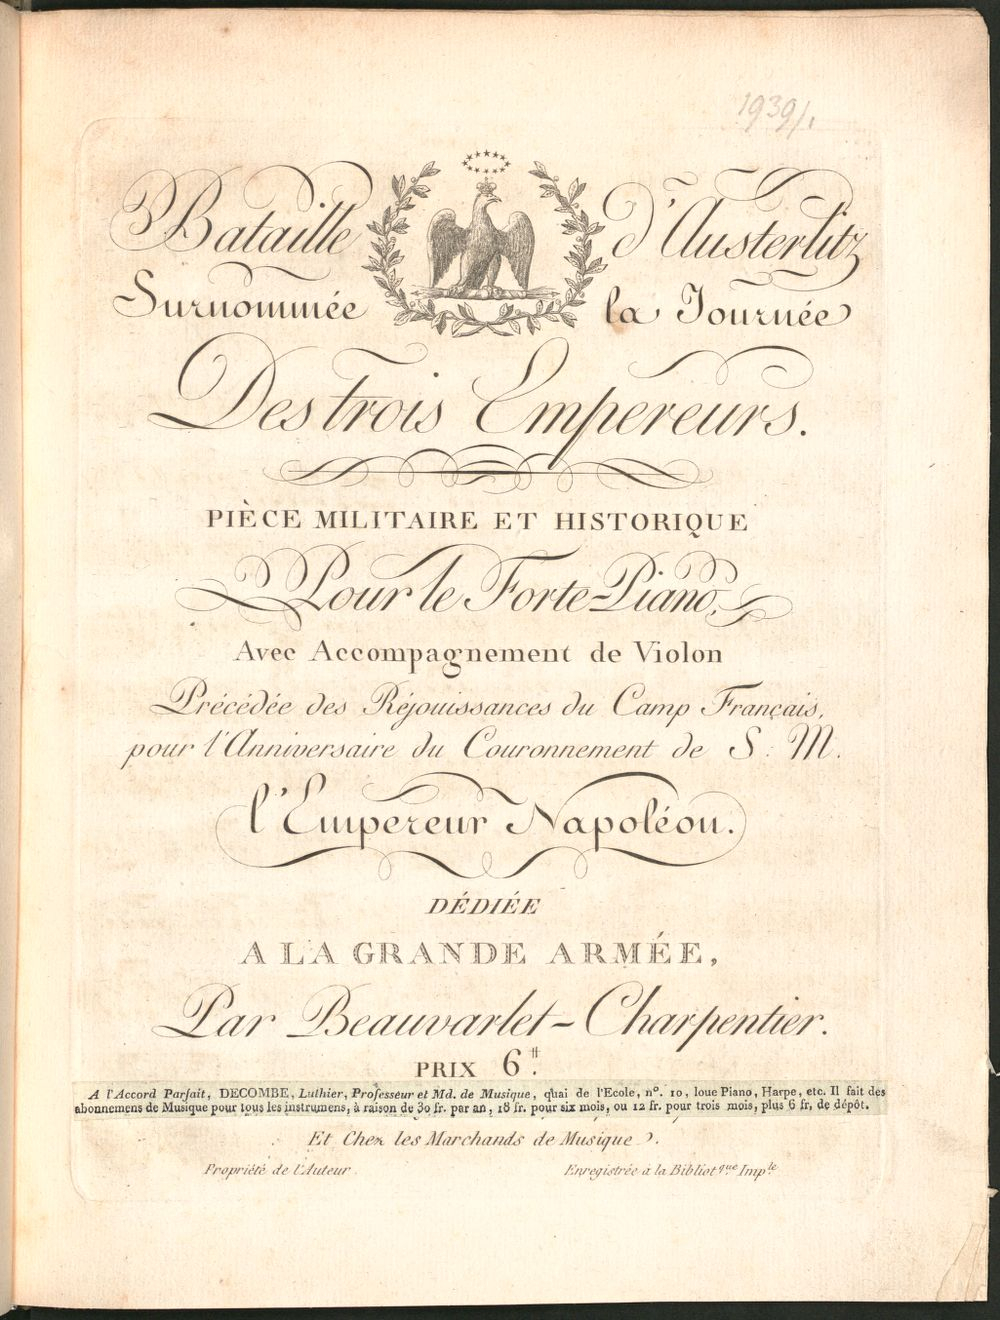 1939/1
Bataille d'Austerlitz
Surnommée la Journée
Des trois Empereurs.
PIÈCE MILITAIRE ET HISTORIQUE
Pour le Forte-Piano,
Avec Accompagnement de Violon
Précédée des Réjouissances du Camp Français,
pour l'Anniversaire du Couronnement de S. M.
l'Empereur Napoléon.
DÉDIÉE
A LA GRANDE ARMÉE,
Par Beauvarlet-Charpentier.
PRIX 6.tt
A l'Accord Parfait, DECOMBE, Luthier, Professeur et Md. de Musique, quai de l'Ecole, n°. 10, loue Piano, Harpe, etc. Il fait des
abonnemens de Musique pour tous les instrumens, à raison de 30 fr. par an, 18 fr. pour six mois, ou 12 fr. pour trois mois, plus 6 fr. de dépôt.
Et Chez les Marchands de Musique.
Propriété de l'Auteur. Enregistrée à la Bibliotque Imple